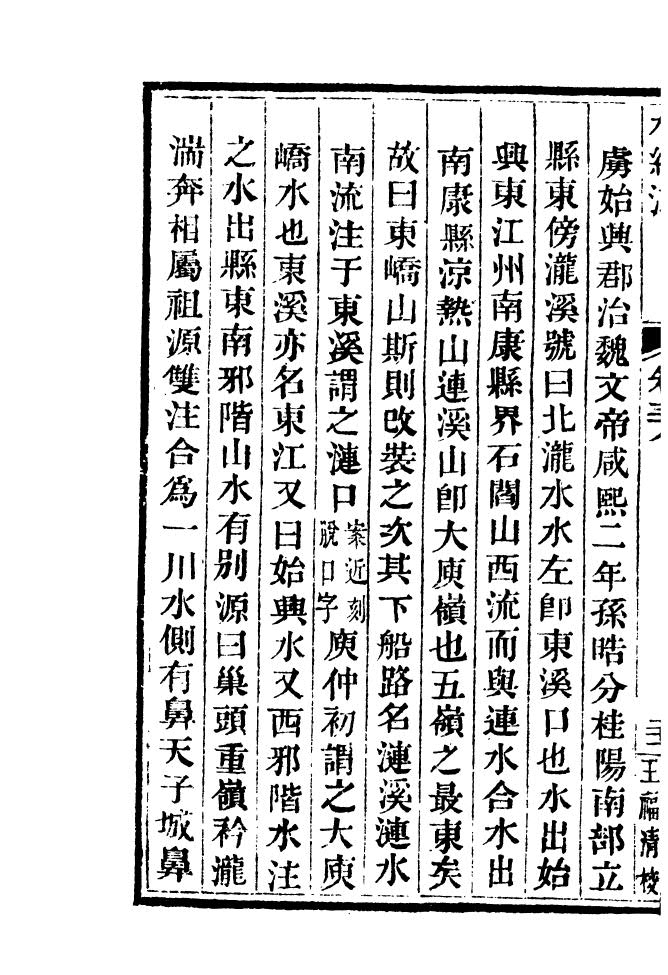 水經注
卷三八
三 王福清校
虞始興郡治魏文帝咸熙二年孫晧分桂陽南部立
縣東傍瀧溪號曰北瀧水水左卽東溪口也水出始
興東江州南康縣界石閻山西流而與連水合水出
南康縣涼熱山連溪山卽大庾嶺也五嶺之最東矣
故曰東嶠山斯則改裝之次其下船路名漣溪漣水
南流注于東溪謂之漣口案近刻脫口字庾仲初謂之大庾
嶠水也東溪亦名東江又曰始興水又西邪階水注
之水出縣東南邪階山水有別源曰巢頭重嶺衿瀧
湍奔相屬祖源雙注合爲一川水側有鼻天子城鼻